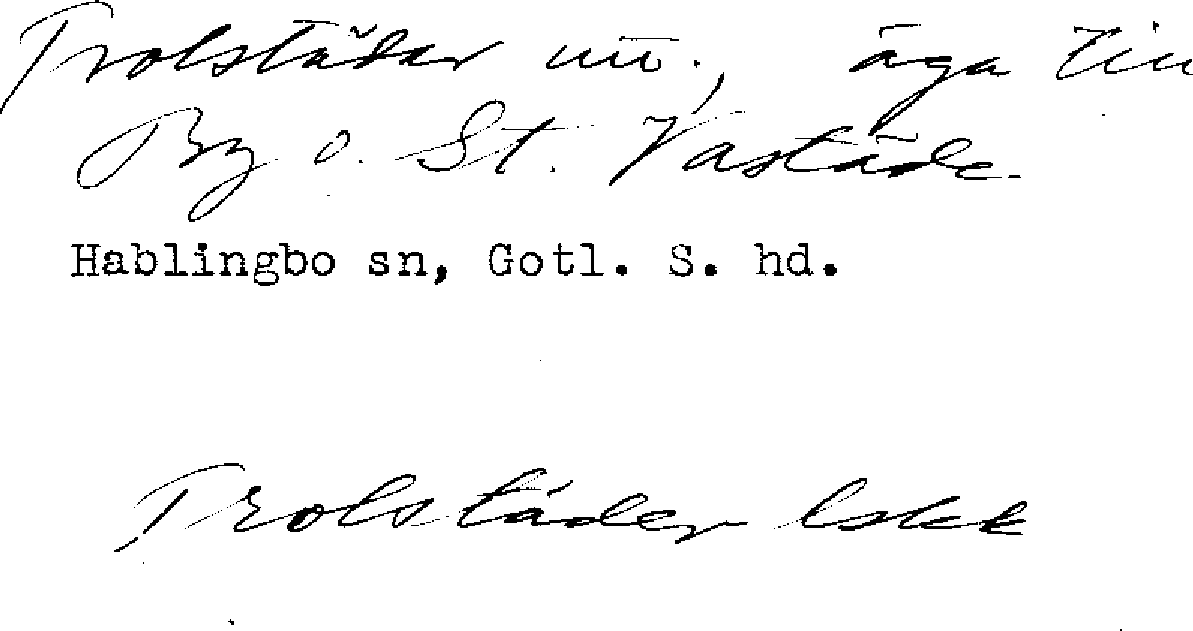 Trolstäder äga till
By o. St. Vastäde.
Hablingbo sn, Gotl. S. hd.
Trolstäder lskk